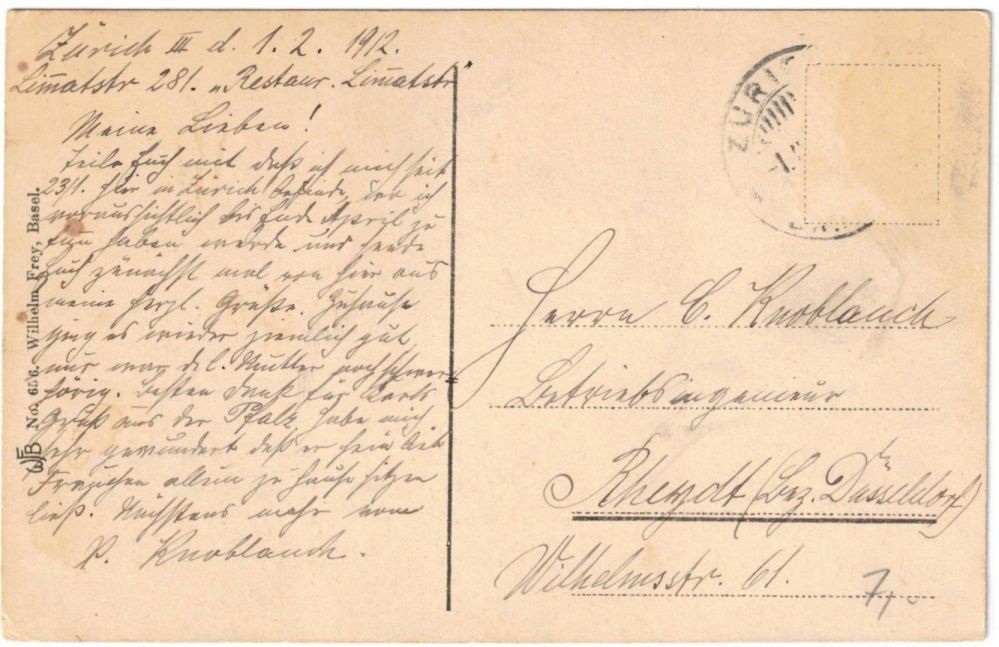 Zürich III d. 1.2. 1912.
Lim̄atstr 281. „Restaur. Lim̄atstr“
Meine Lieben!
Teile Euch mit daß ich mich seit
23/1. hier in Zürich befinde, wo ich
voraussichtlich bis Ende April zu
tun haben werde und sende
Euch zunächst mal von hier aus
meine herzl. Grüße. Zuhause
ging es wieder ziemlich gut,
nur war d. l. Mutter noch schwer-
hörig. Besten Dank für Karls
Gruß aus der Pfalz, habe mich
sehr gewundert daß er sein lieb
Frauchen allein zu Hause sitzen
ließ. Nächstens mehr vom
P. Knoblauch.
WFB No. 656. Wilhelm Frey, Basel.
ZÜRI
-1.
Herrn C. Knoblauch
Betriebsingenieur
Rheydt (Bez. Düsseldorf)
Wilhelmsstr. 61.
7,-